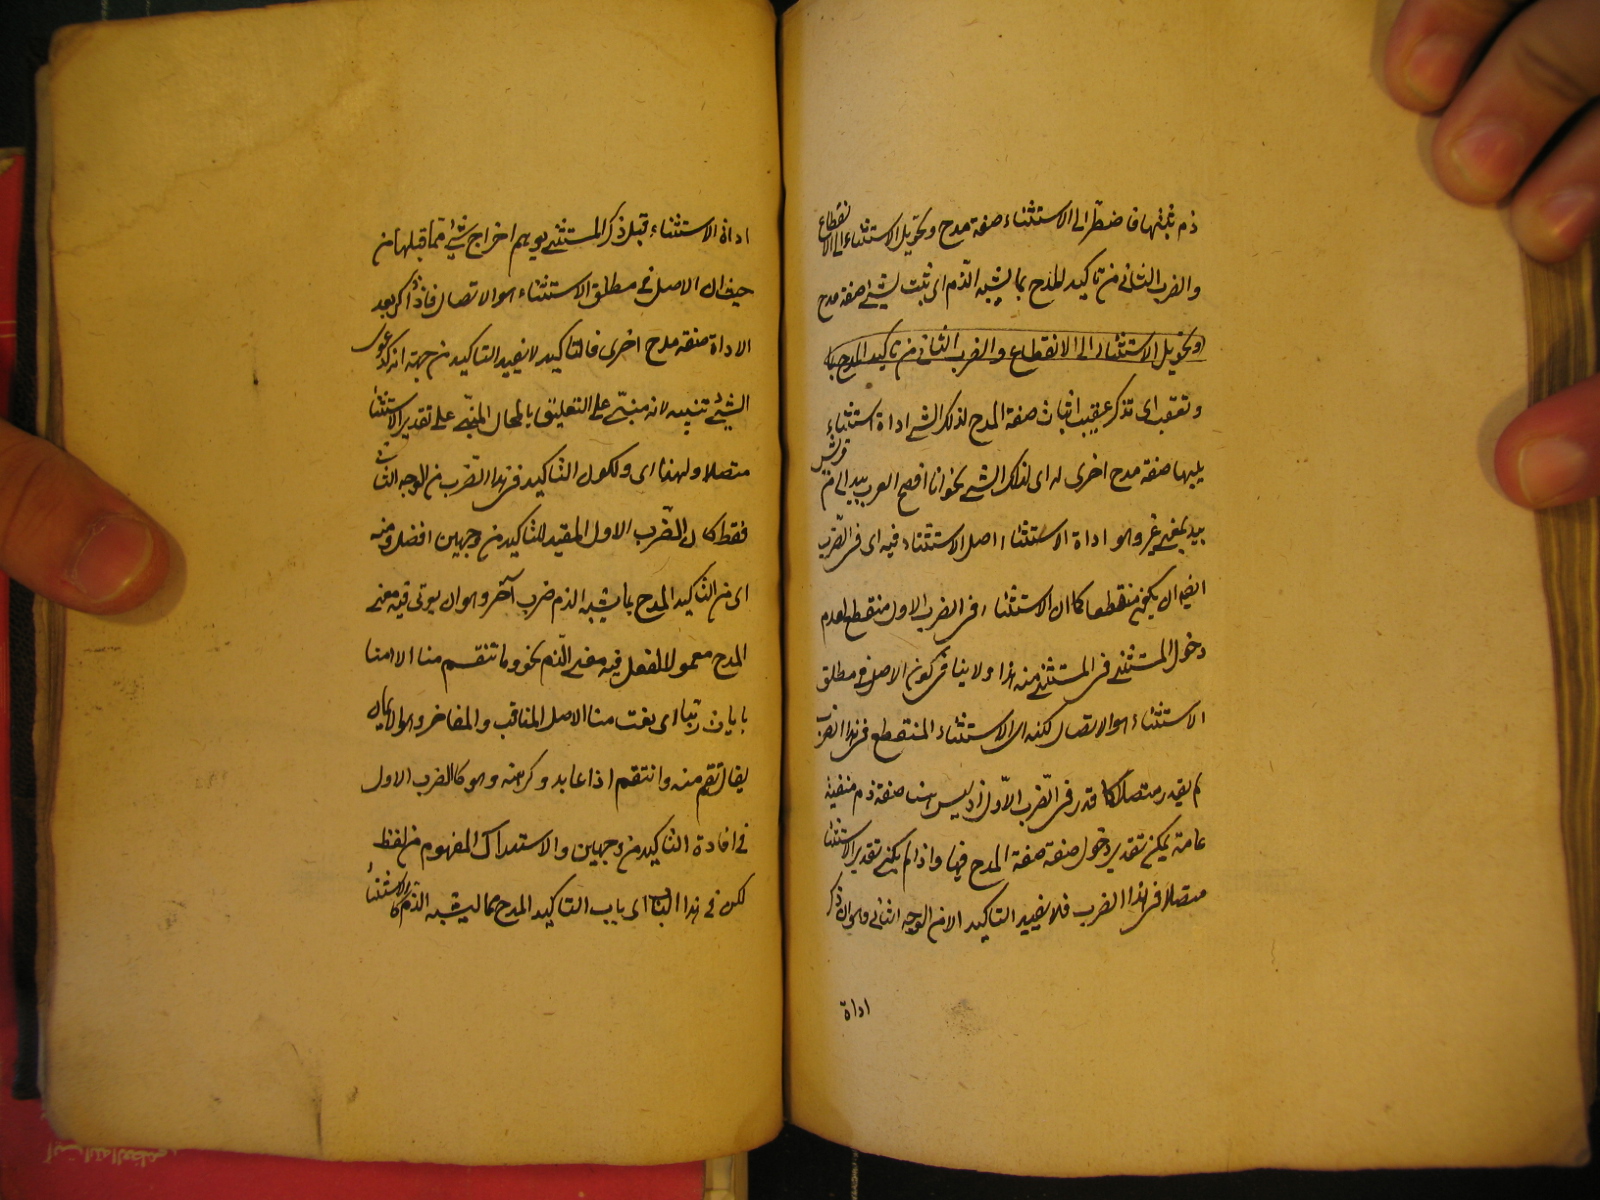 ذم يثبتها فاضطر الى الاستثناء صفة مدح وتحويل الاستثناء الى الانقطاع
والضرب الثانى من تاكيد المدح بما يشبه الذم ان يثبت لشئ صفة مدح
وتحويل الاستثناء الى الانقطاع والضرب الثانى من تاكيد المدح بما
وتعقب اى تذكر عقيب اثبات صفة المدح لذلك الشئ اداة استثناء
يليها صفة مدح اخرى له اى لذلك الشئ نحو انا افصح العرب بيد انى من قريش
بيد بمعنى غير وهو اداة الاستثناء اصل الاستثناء فيه اى فى الضرب
ايضا ان يكون منقطعا كما ان الاستثناء فى الضرب الاول منقطع لعدم
دخول المستثنى فى المستثنى منه هذا ولا ينافى كون الاصل فى مطلق
الاستثناء هو الاتصال لكنه اى الاستثناء المنقطع فى هذا الضرب
لم يقدر متصلا كما قدر فى الضرب الاول اذ ليس هنا صفة ذم منفية
عامة يمكن تقدير دخول صفة صفة المدح فيها واذا لم يكن تقدير الاستثنا
متصلا فى هذا الضرب فلا يفيد التاكيد الا من الوجه الثانى وهو ان ذكر
اداة
اداة الاستثناء قبل ذكر المستثنى يوهم اخراج شئ مما قبلها من
حيث ان الاصل فى مطلق الاستثناء هو الاتصال فاذا ذكر بعد
الاداة صفة مدح اخرى فالتاكيد لا يفيد التاكيد من جهة انه كدعوى
الشئ تنبيه لانه مبنى على التعليق بالمحال المبنى على تقدير الاستثنا
متصلا ولهذا اى ولكون التاكيد فى هذا الضرب من الوجه الثانى
فقط كان الضرب الاول المفيد للتاكيد من وجهين افضل ومنه
اى من التاكيد المدح بما يشبه الذم ضرب آخر وهو ان يوتى فيه معنى
المدح معمولا لفعل فيه معنى الذم نحو وما تنقم منا الا امنا
بايات ربنا اى يعت منا الاصل المناقب والمفاخر وهو الايمان
يقال نقم منه وانتقم اذا عابه وكرهه وهو كالضرب الاول
فى افادة التاكيد من وجهين والاستدراك المفهوم من لفظ
لكن فى هذا الباب اى باب التاكيد المدح بما يشبه الذم كالاستثنا